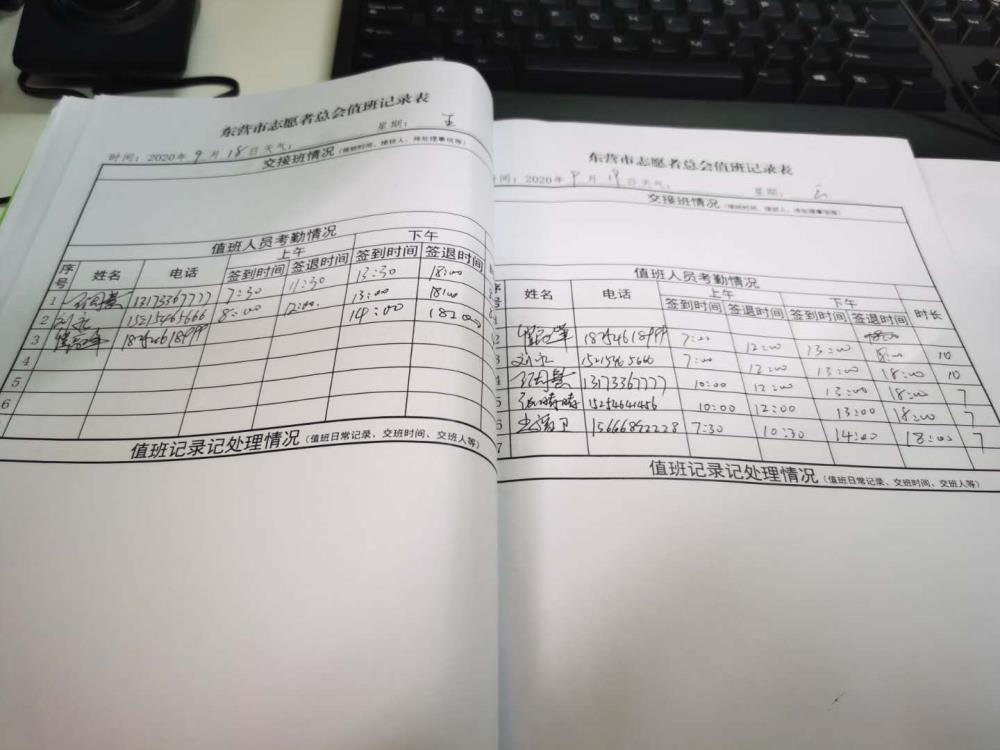 东营市志愿者总会值班记录表
时间：2020年9月18日天气： 星期：五
交接班情况（接班时间、接班人、待处理事项等）
值班人员考勤情况
序号 姓名 电话 上午 下午
签到时间 签退时间 签到时间 签退时间
1 13173367777 7:30 11:30 13:30 18:00
2 刘永 15215465666 8:00 12:00 13:00 18:00
3 18254618999 14:00 18:00
4
5
6
值班记录记处理情况（值班日常记录、交班时间、交班人等）
东营市志愿者总会值班记录表
时间：2020年9月19日天气： 星期：
交接班情况（接班时间、接班人、待处理事项等）
值班人员考勤情况
序号 姓名 电话 上午 下午 时长
签到时间 签退时间 签到时间 签退时间
1
2 18254618999 7:00 12:00 13:00 18:00 10
3 刘永 15215465666 7:00 12:00 13:00 18:00 10
4 13173367777 10:00 12:00 13:00 18:00 7
5 张晴晴 15254641456 10:00 12:00 13:00 18:00 7
6 15666892228 7:30 10:30 14:00 18:00 7
7
值班记录记处理情况（值班日常记录、交班时间、交班人等）